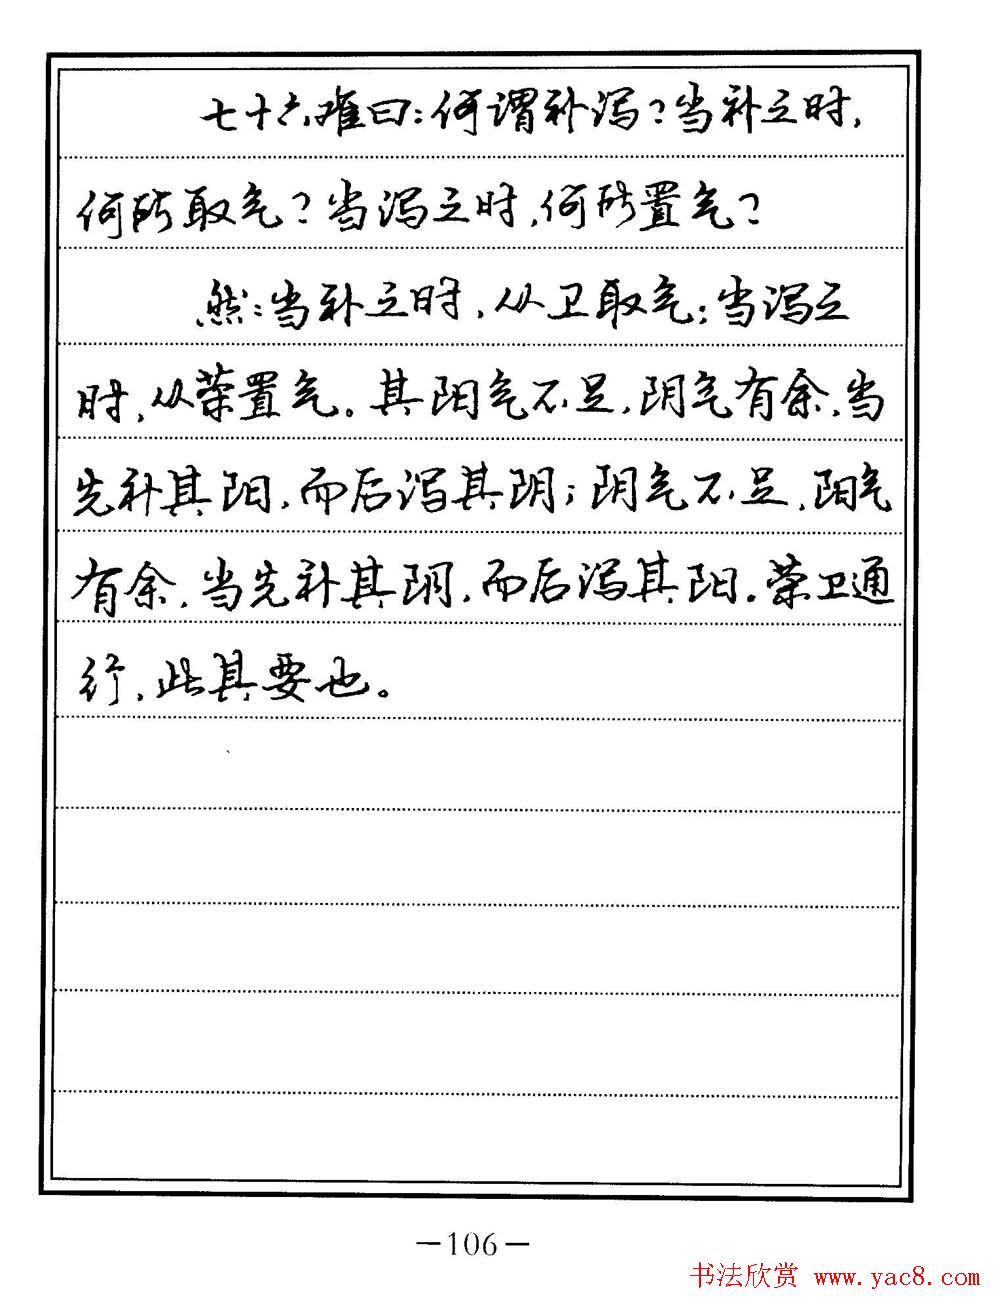 七十六难曰：何谓补泻？当补之时，
何所取气？当泻之时，何所置气？
然：当补之时，从卫取气；当泻之
时，从荣置气。其阳气不足，阴气有余，当
先补其阳，而后泻其阴；阴气不足，阳气
有余，当先补其阴，而后泻其阳。荣卫通
行，此其要也。
—106—
书法欣赏 www.yac8.com